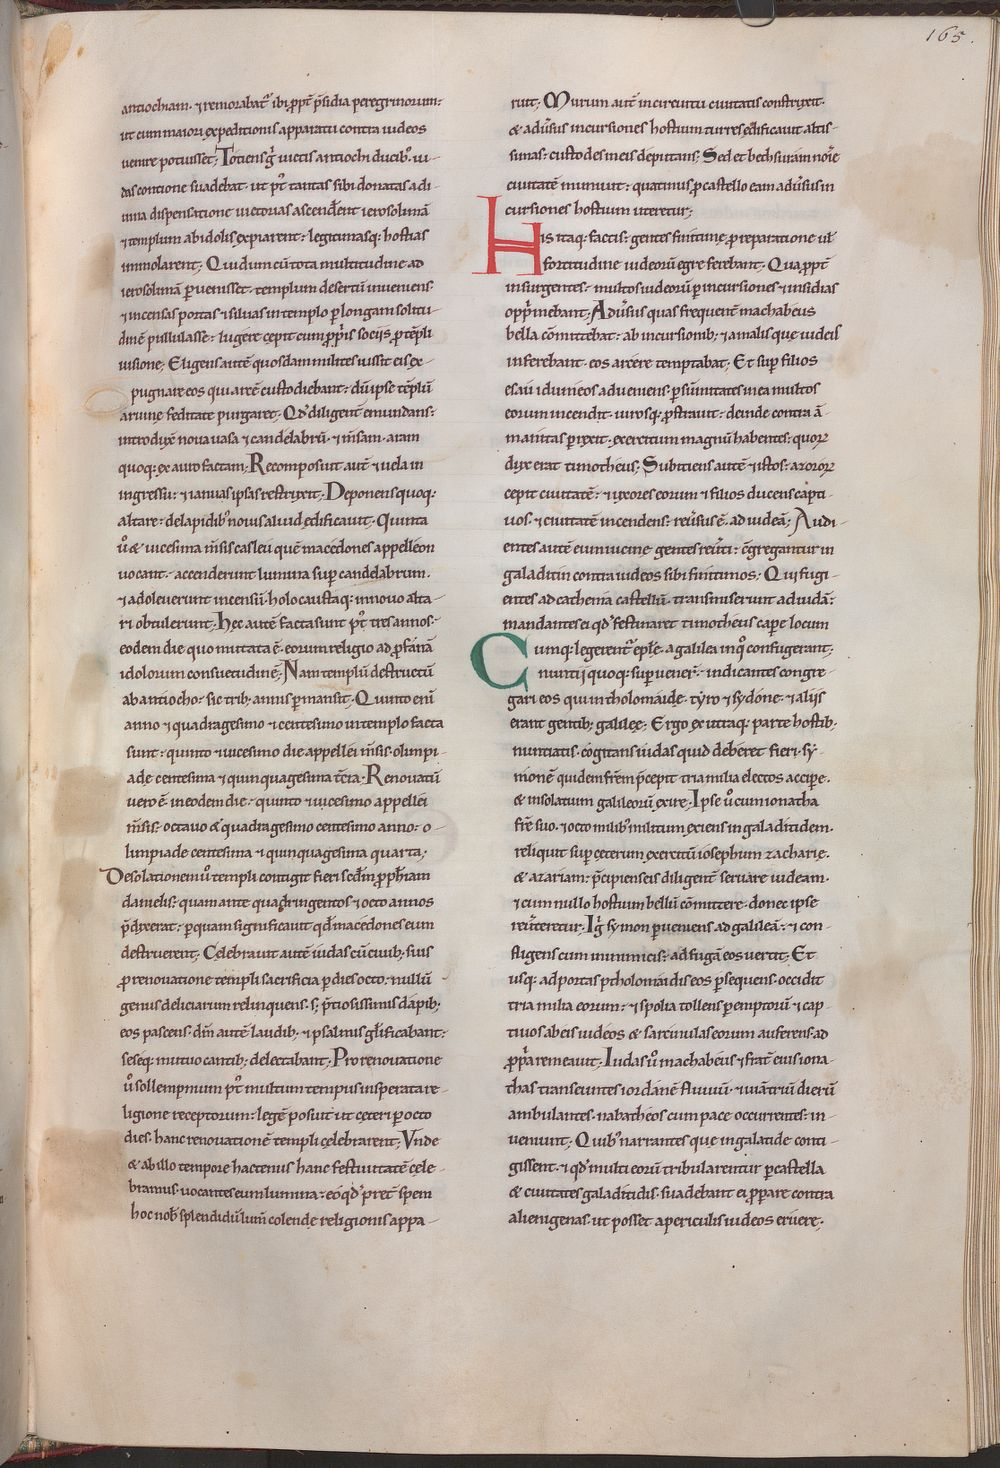 165.
antiochiam. ⁊ remorabat᷑ ibi ꝓpt̄ p̄sidia peregrinorum:
ut cum maiori expeditionis apparatu contra iudeos
uenire potuisset; Totiens g̊ uictis antiochi ducib; iu-
das contione suadebat. ut pt̄ tantas sibi donatas a di-
uina dispensatione uictorias ascend̄ent ierosolimā
⁊ templum ab idolis expiarent: legitimasq; hostias
immolarent; Qui dum cū tota multitudine ad
ierosolimā ꝑuenisset. templum desertū inueniens
⁊ incensas portas ⁊ siluas in templo ꝑ longam solitu-
dinē pullulasse: lugere cepit cum ꝓpriis sociis ꝓ tēpli
uisione; Eligens autē quosdam milites iussit eis ex-
pugnare eos qui arcē custodiebant: dū ipse tēplū
a ruine feditate purgaret; Qd̓ diligent̄ emundans:
introduxit noua uasa ⁊ candelabrū. ⁊ m̄sam. aram
quoq; ex auro factam; Recomposuit autē ⁊ uela in
ingressu: ⁊ ianuas ipsas restrixit; Deponens quoq;
altare: de lapidib; nouis aliud ędificauit. Quinta
ů & uicesima m̄sis casleu quē macedones appelleon
uocant. accenderunt lumina sup candelabrum.
⁊ adoleuerunt incensū. holocaustaq; in nouo alta-
ri obtulerunt; Hęc autē facta sunt pt̄ tres annos.
eodem die quo mutata ē. eorum religio ad ꝓfanā
idolorum consuetudinē; Nam templū destructū
ab antiocho. sic trib; annis ꝑmansit. Quinto eni
anno ⁊ quadragesimo ⁊ centesimo in templo facta
sunt. quinto ⁊ uicesimo die appellei m̄sis. olimpi-
ade centesima ⁊ quinquagesima t̄cia. Renouatū
uero ē. in eodem die. quinto ⁊ uicesimo appellei
m̄sis. octauo & quadragesimo centesimo anno. o-
limpiade centesima ⁊ quinquagesima quarta;
Desolationem ů templi contigit fieri scd̄m ꝓph̄iam
danielis. quam ante quadringentos ⁊ octo annos
p̄dixerat: ꝑ quam significauit qd̓ macedones eum
destruerent; Celebrauit autē iudas cū ciuib; suis
ꝓ renouatione templi sacrificia ꝑ dies octo. nullū
genus deliciarum relinquens. s; p̄tiosissimis dapib;
eos pascens. dm̄ autē laudib; ⁊ psalmis gl̄ificabant:
seseq; mutuo cantib; delectabant; Pro renouatione
ů sollempnium pt̄ multum tempus insperata re-
ligione receptorum: legē posuit ut cęteri ꝑ octo
dies. hanc renouationē templi cęlebrarent; Vnde
& ab illo tempore hactenus hanc festiuitatē cęle-
bramus. uocantes eum lumina: eo qd̓ pret̄ spem
hoc nob̓ splendidū lum̄ colende religionis appa-
ruit; Murum autē in circuitu ciuitatis construxit.
& aduersus incursiones hostium turres ędificauit altis-
simas: custodes in eis deputans; Sed et bechsuram noīe
ciuitatē muniuit: quatinus ꝓ castello eam aduersus in
cursiones hostium uteretur;
His itaq; factis: gentes finitimę ꝓ reparatione ul̓
fortitudine iudeorū egre ferebant. Qua ꝓpt̄
insurgentes. multos iudeorū ꝑ incursiones ⁊ insidias
opp̄mebant; Aduersus quas frequent̄ machabeus
bella cōmittebat: ab incursionib; ⁊ a malis que iudeis
inferebant. eos arcere temptabat; Et sup filios
esau idumeos adueniens. ꝑ sūmitates in ea multos
eorum incendit. uirosq; ꝓstrauit: deinde contra ā-
manitas ꝑrexit. exercitum magnū habentes: quoꝝ
dux erat timotheus; Subiciens autē ⁊ istos: azoroꝝ
cepit ciuitatē: ⁊ uxores eorum ⁊ filios ducens capti-
uos. ⁊ ciuitatē incendens: reūsus ē. ad iudeā; Audi-
entes autē eum uicine gentes reūti: cōgregantur in
galaditin contra iudeos sibi finitimos. Qui fugi-
entes ad cathema castellū. transmiserunt ad iudā:
mandantes ei qd̓ festinaret timotheus cape locum
Cumq; legerent᷑ epl̄ę. a galilea in q̊ confugerant;
nuntii quoq; superuener̄. indicantes congre-
gari eos qui in tholomaide. tyro ⁊ sydone. ⁊ aliis
erant gentib; galilęę; Ergo ex utraq; parte hostib;
nuntiatis. cogitans iudas quid deberet fieri. sy-
mionē quidem fr̄em p̄cepit tria milia electos accipe.
& in solatium galileorū exire; Ipse ů cum ionatha
fr̄e suo. ⁊ octo milib; militum exiens in galaditidem.
reliquit sup ceterum exercitū iosephum zacharie.
& azariam: p̄cipiens eis diligent̄ seruare iudeam.
⁊ cum nullo hostium bellū cōmittere. donec ipse
reūteretur. Ig̊ symon ꝑueniens ad galileā: ⁊ con-
fligens cum inimicis: ad fugā eos uertit; Et
usq; ad portas ptholomaidis eos ꝑsequens. occidit
tria milia eorum: ⁊ spolia tollens ꝑemptorū ⁊ cap-
tiuos ab eis iudeos & sarcinulas eorum auferens. ad
ꝓpria remeauit; Iudas ů machabeus ⁊ frat̄ eius iona-
thas transeuntes iordanē fluuiū. ⁊ uiā triū dierū
ambulantes. nabatheos cum pace occurrentes. in-
ueniunt; Quib; narrantes que in galatide conti-
gissent. ⁊ qd̓ multi eorū tribularentur ꝑ castella
& ciuitates galaditidis. suadebant ei ꝓperare contra
alienigenas. ut posset a periculis iudeos eruere;